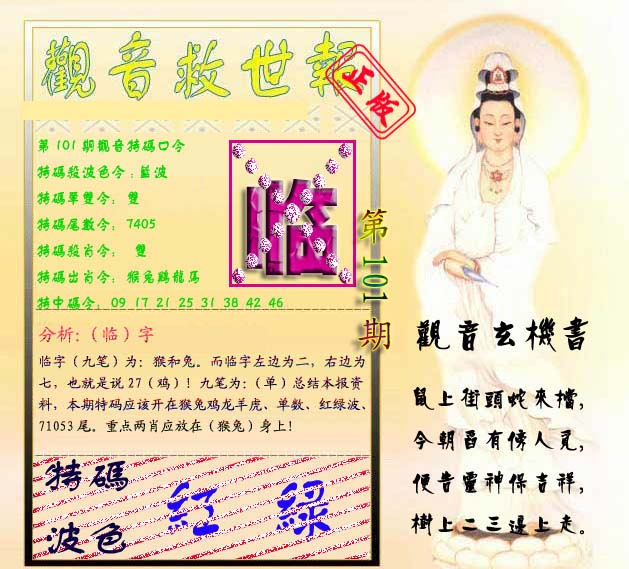 觀音救世報
正版
第101期觀音特碼口令
特碼殺波色令:藍波
特碼單雙令: 雙
特碼尾數令: 7405
特碼殺肖令: 雙
特碼出肖令: 猴兔鷄龍馬
特中碼令: 09 17 21 25 31 38 42 46
临
第101期
分析:(临)字
临字（九笔）为：猴和兔。而临字左边为二，右边为
七，也就是说27（鸡）！九笔为:（单）总结本报资
料，本期特码应该开在猴兔鸡龙羊虎、单数、红绿波、
71053尾。重点两肖应放在（猴兔）身上！
特碼
波色
紅 綠
觀音玄機書
鼠上街頭蛇來擋,
今朝可有候人見,
便告靈神保吉祥,
樹上二三邊上走。